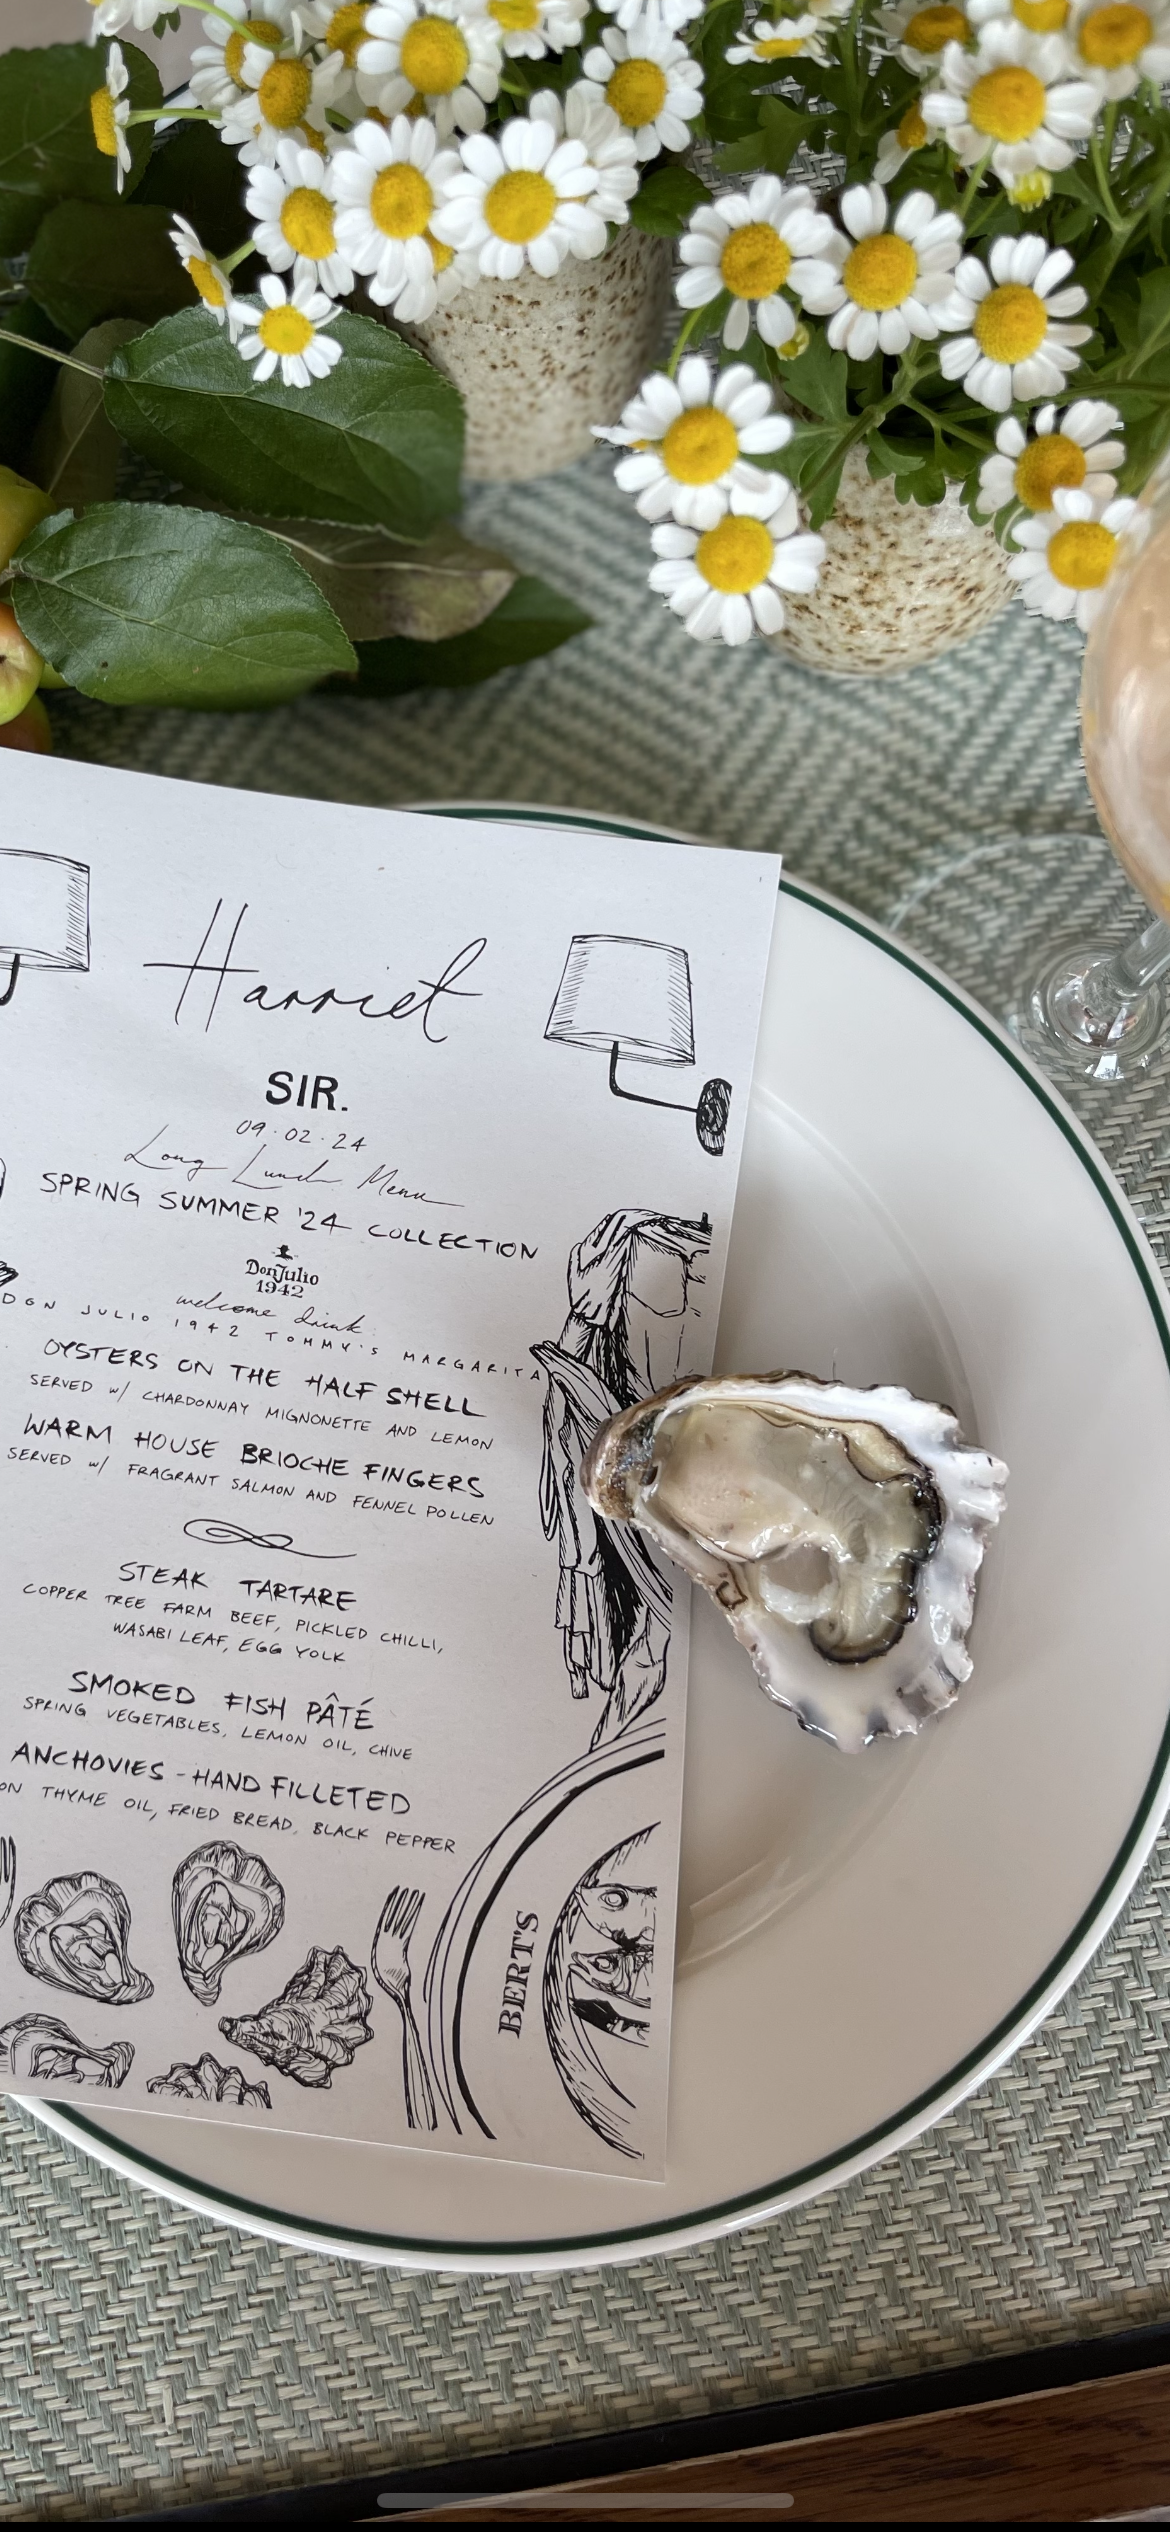 Harriet
SIR.
09.02.24
Long Lunch Menu
SPRING SUMMER '24 COLLECTION
Don Julio
1942
welcome drink:
DON JULIO 1942 TOMMY'S MARGARITA
OYSTERS ON THE HALF SHELL
SERVED w/ CHARDONNAY MIGNONETTE AND LEMON
WARM HOUSE BRIOCHE FINGERS
SERVED w/ FRAGRANT SALMON AND FENNEL POLLEN
STEAK TARTARE
COPPER TREE FARM BEEF, PICKLED CHILLI,
WASABI LEAF, EGG YOLK
SMOKED FISH PÂTÉ
SPRING VEGETABLES, LEMON OIL, CHIVE
ANCHOVIES - HAND FILLETED
ON THYME OIL, FRIED BREAD, BLACK PEPPER
BERT'S